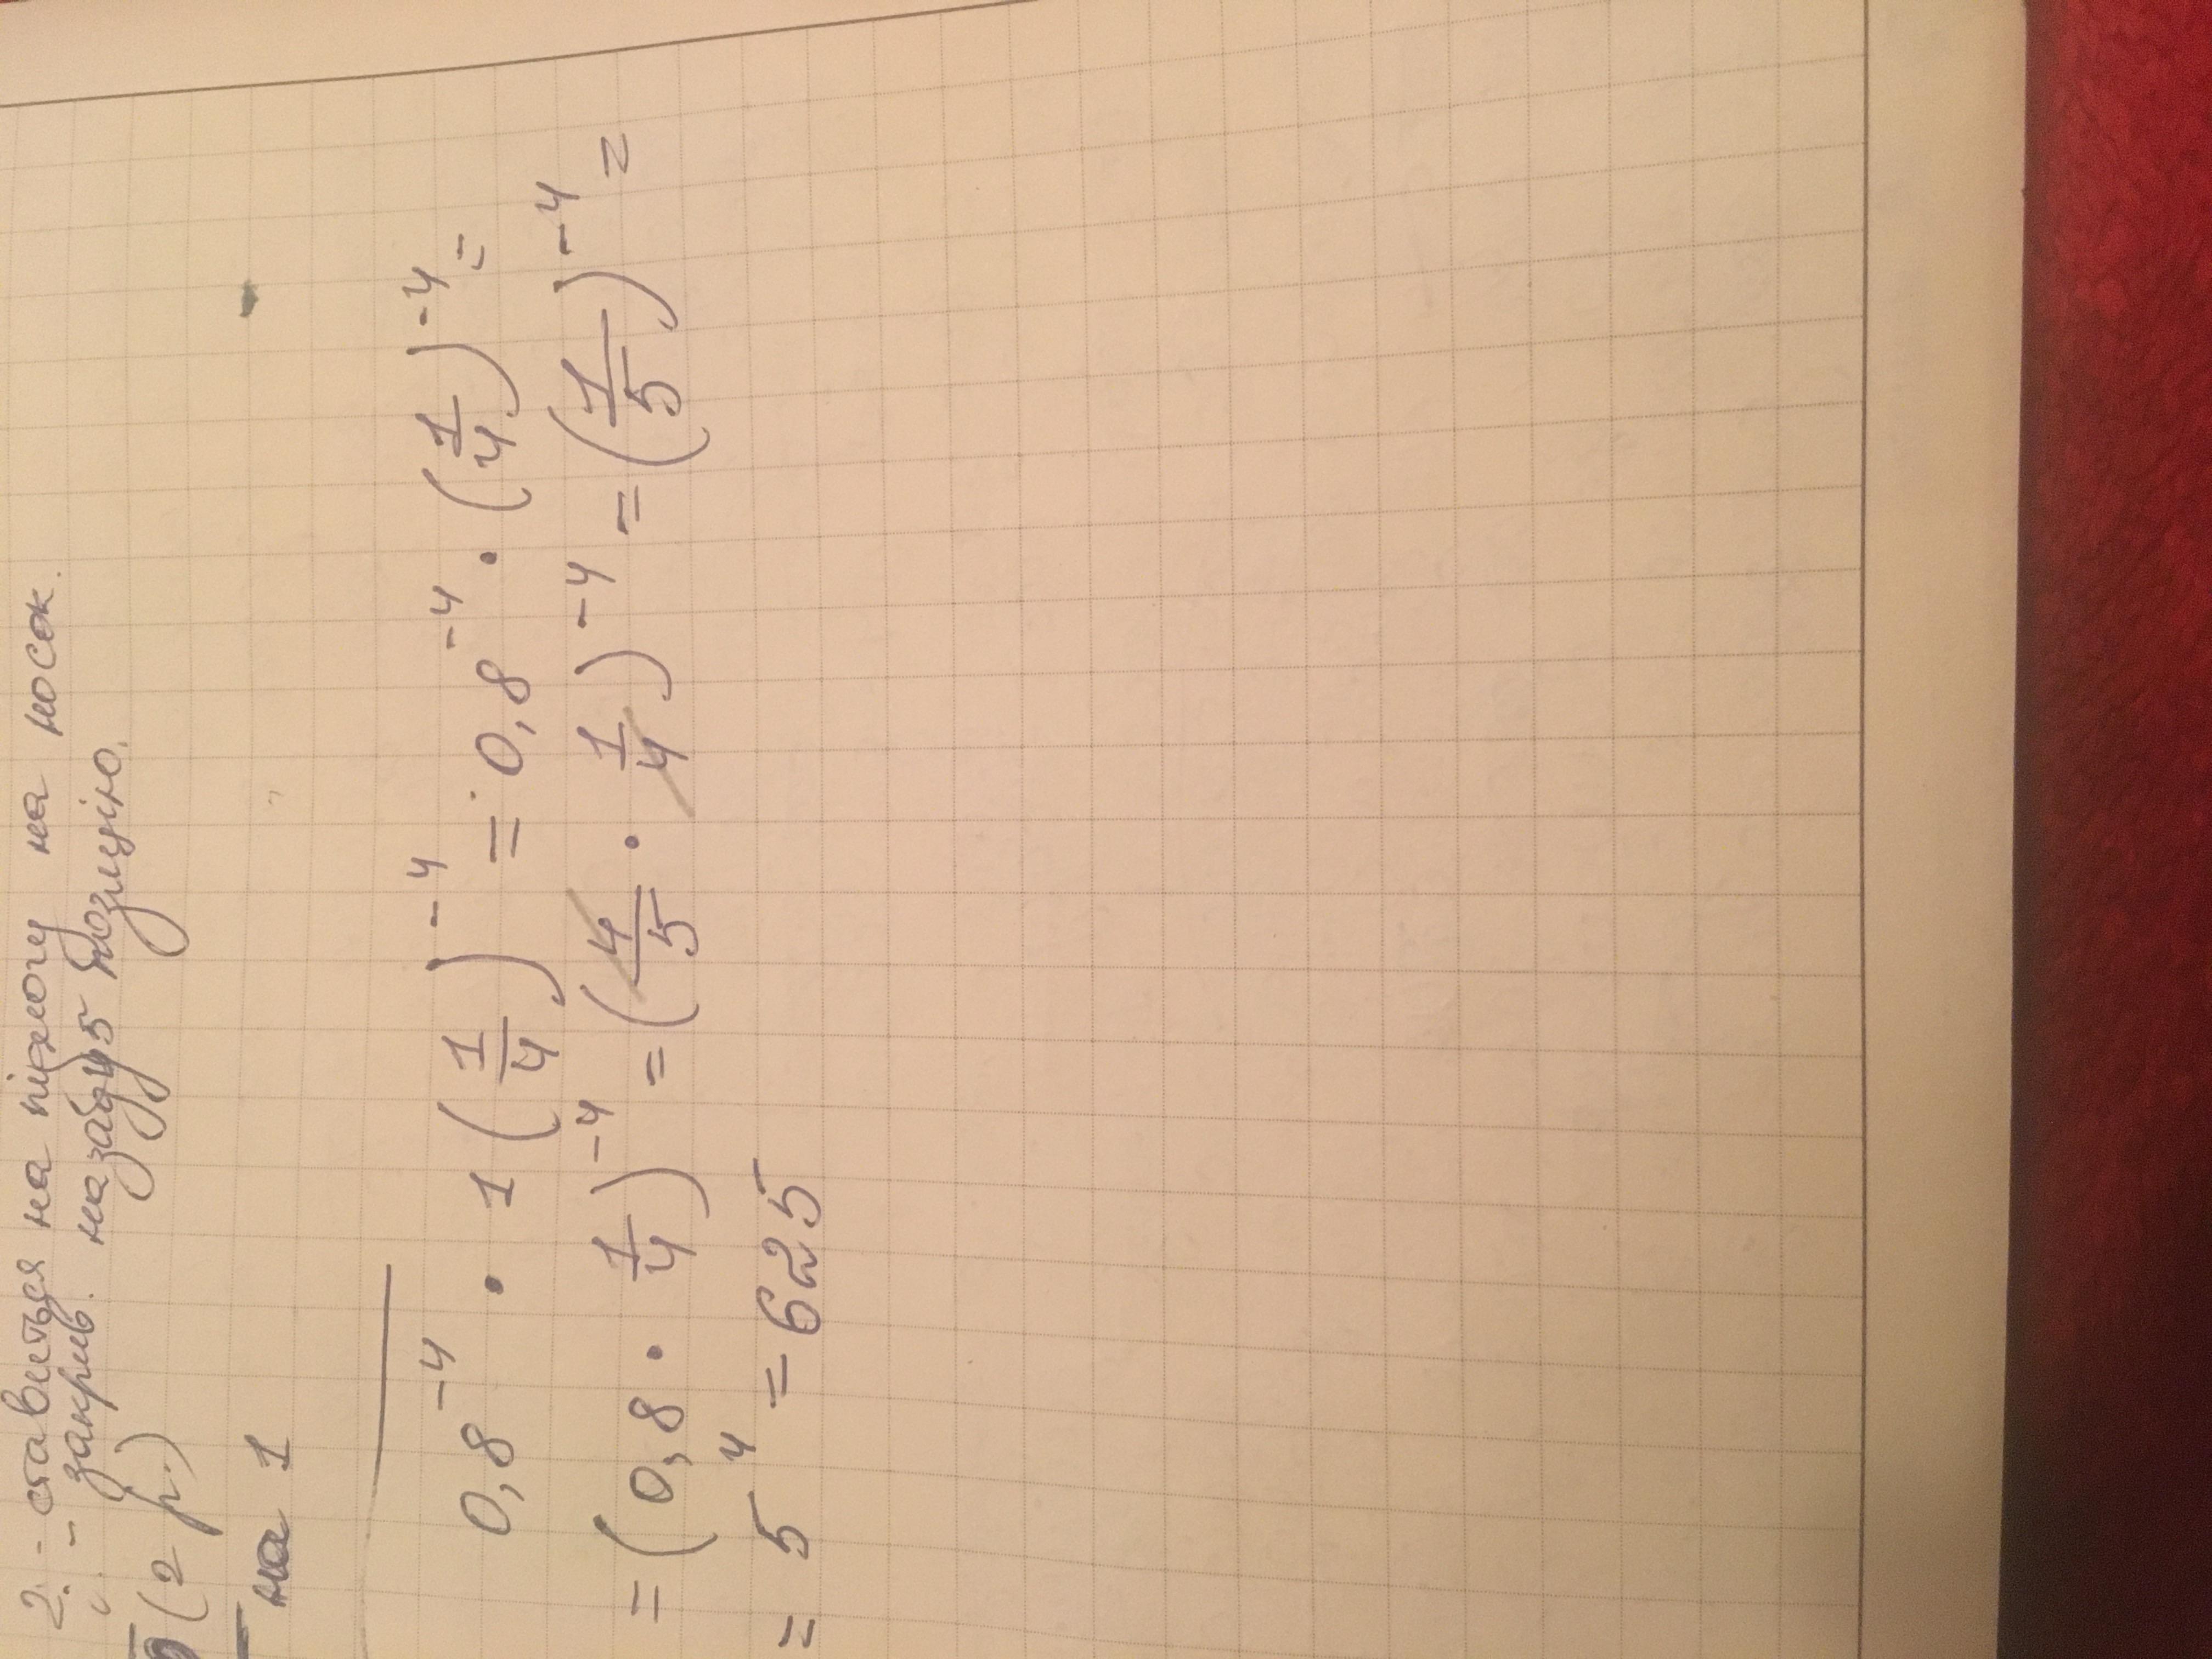 2. - ставиться на підлогу на носок.
- закрив. назад у 5 позицію.
(2 р.)
на 1
0,8⁻⁴ · 1(1/4)⁻⁴ = 0,8⁻⁴ · (1/4)⁻⁴ =
= (0,8 · 1/4)⁻⁴ = (4/5 · 1/4)⁻⁴ = (1/5)⁻⁴ =
= 5⁴ = 625